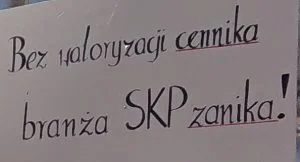 Bez waloryzacji cennika
branża SKP zanika!